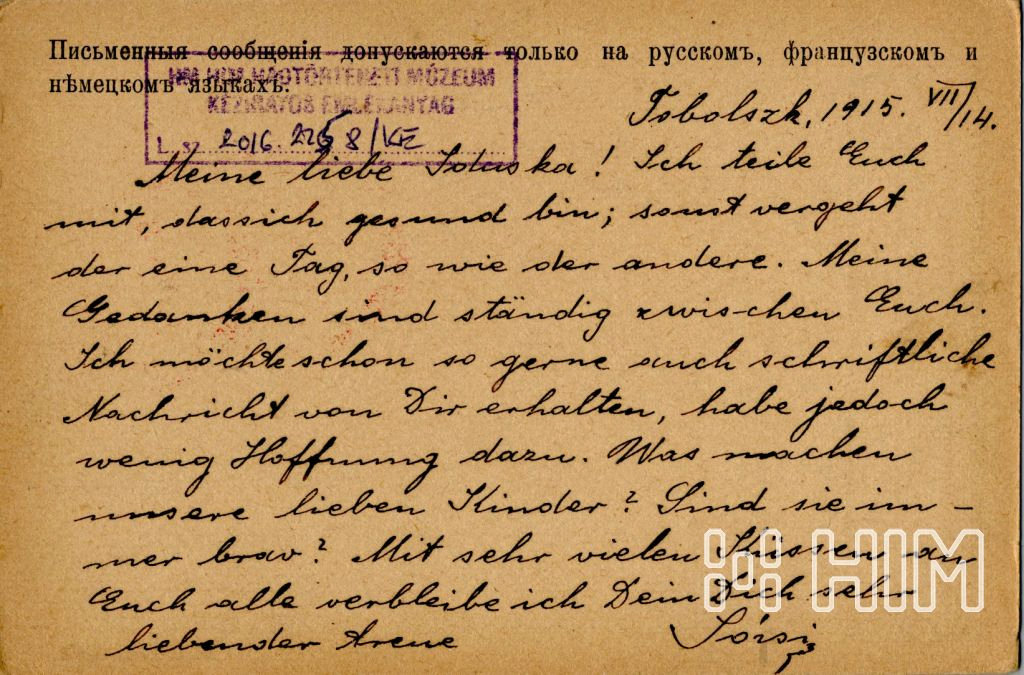 Письменныя сообщенія допускаются только на русскомъ, французскомъ и
нѣмецкомъ языкахъ.
HM HIM HADTÖRTÉNETI MÚZEUM
KÉZIRATOS EMLÉKANYAG
L. sz. 2016. 225 8/KE
Tobolszk, 1915. VII/14.
Meine liebe ! Ich teile Euch
mit, dass ich gesund bin; sonst vergeht
der eine Tag, so wie der andere. Meine
Gedanken sind ständig zwischen Euch.
Ich möchte schon so gerne auch schriftliche
Nachricht von Dir erhalten, habe jedoch
wenig Hoffnung dazu. Was machen
unsere lieben Kinder? Sind sie im-
mer brav? Mit sehr vielen Küssen an
Euch alle verbleibe ich Dein Dich sehr
liebender
HIM